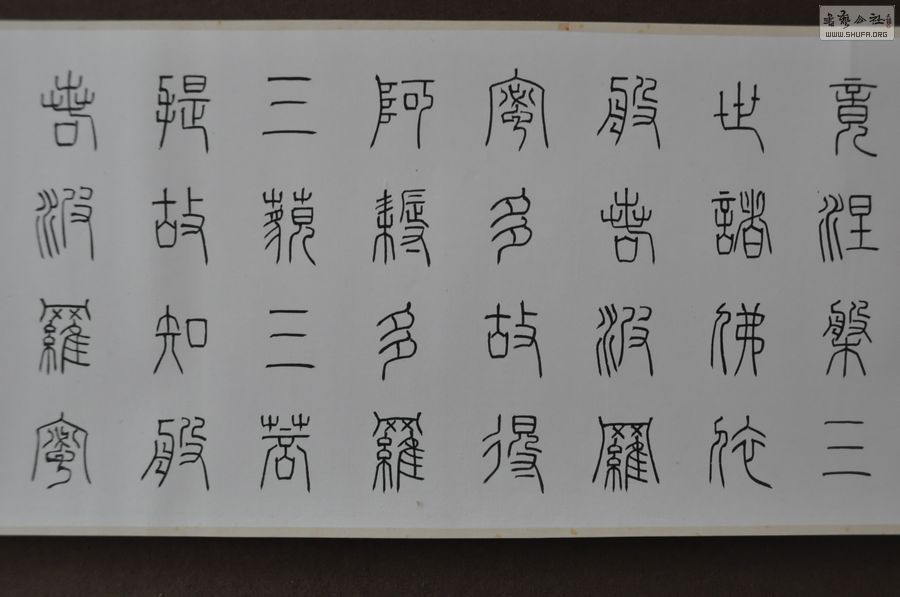 竟涅槃三
世諸佛依
般若波羅
蜜多故得
阿耨多羅
三藐三菩
提故知般
若波羅蜜
書藝公社
WWW.SHUFA.ORG